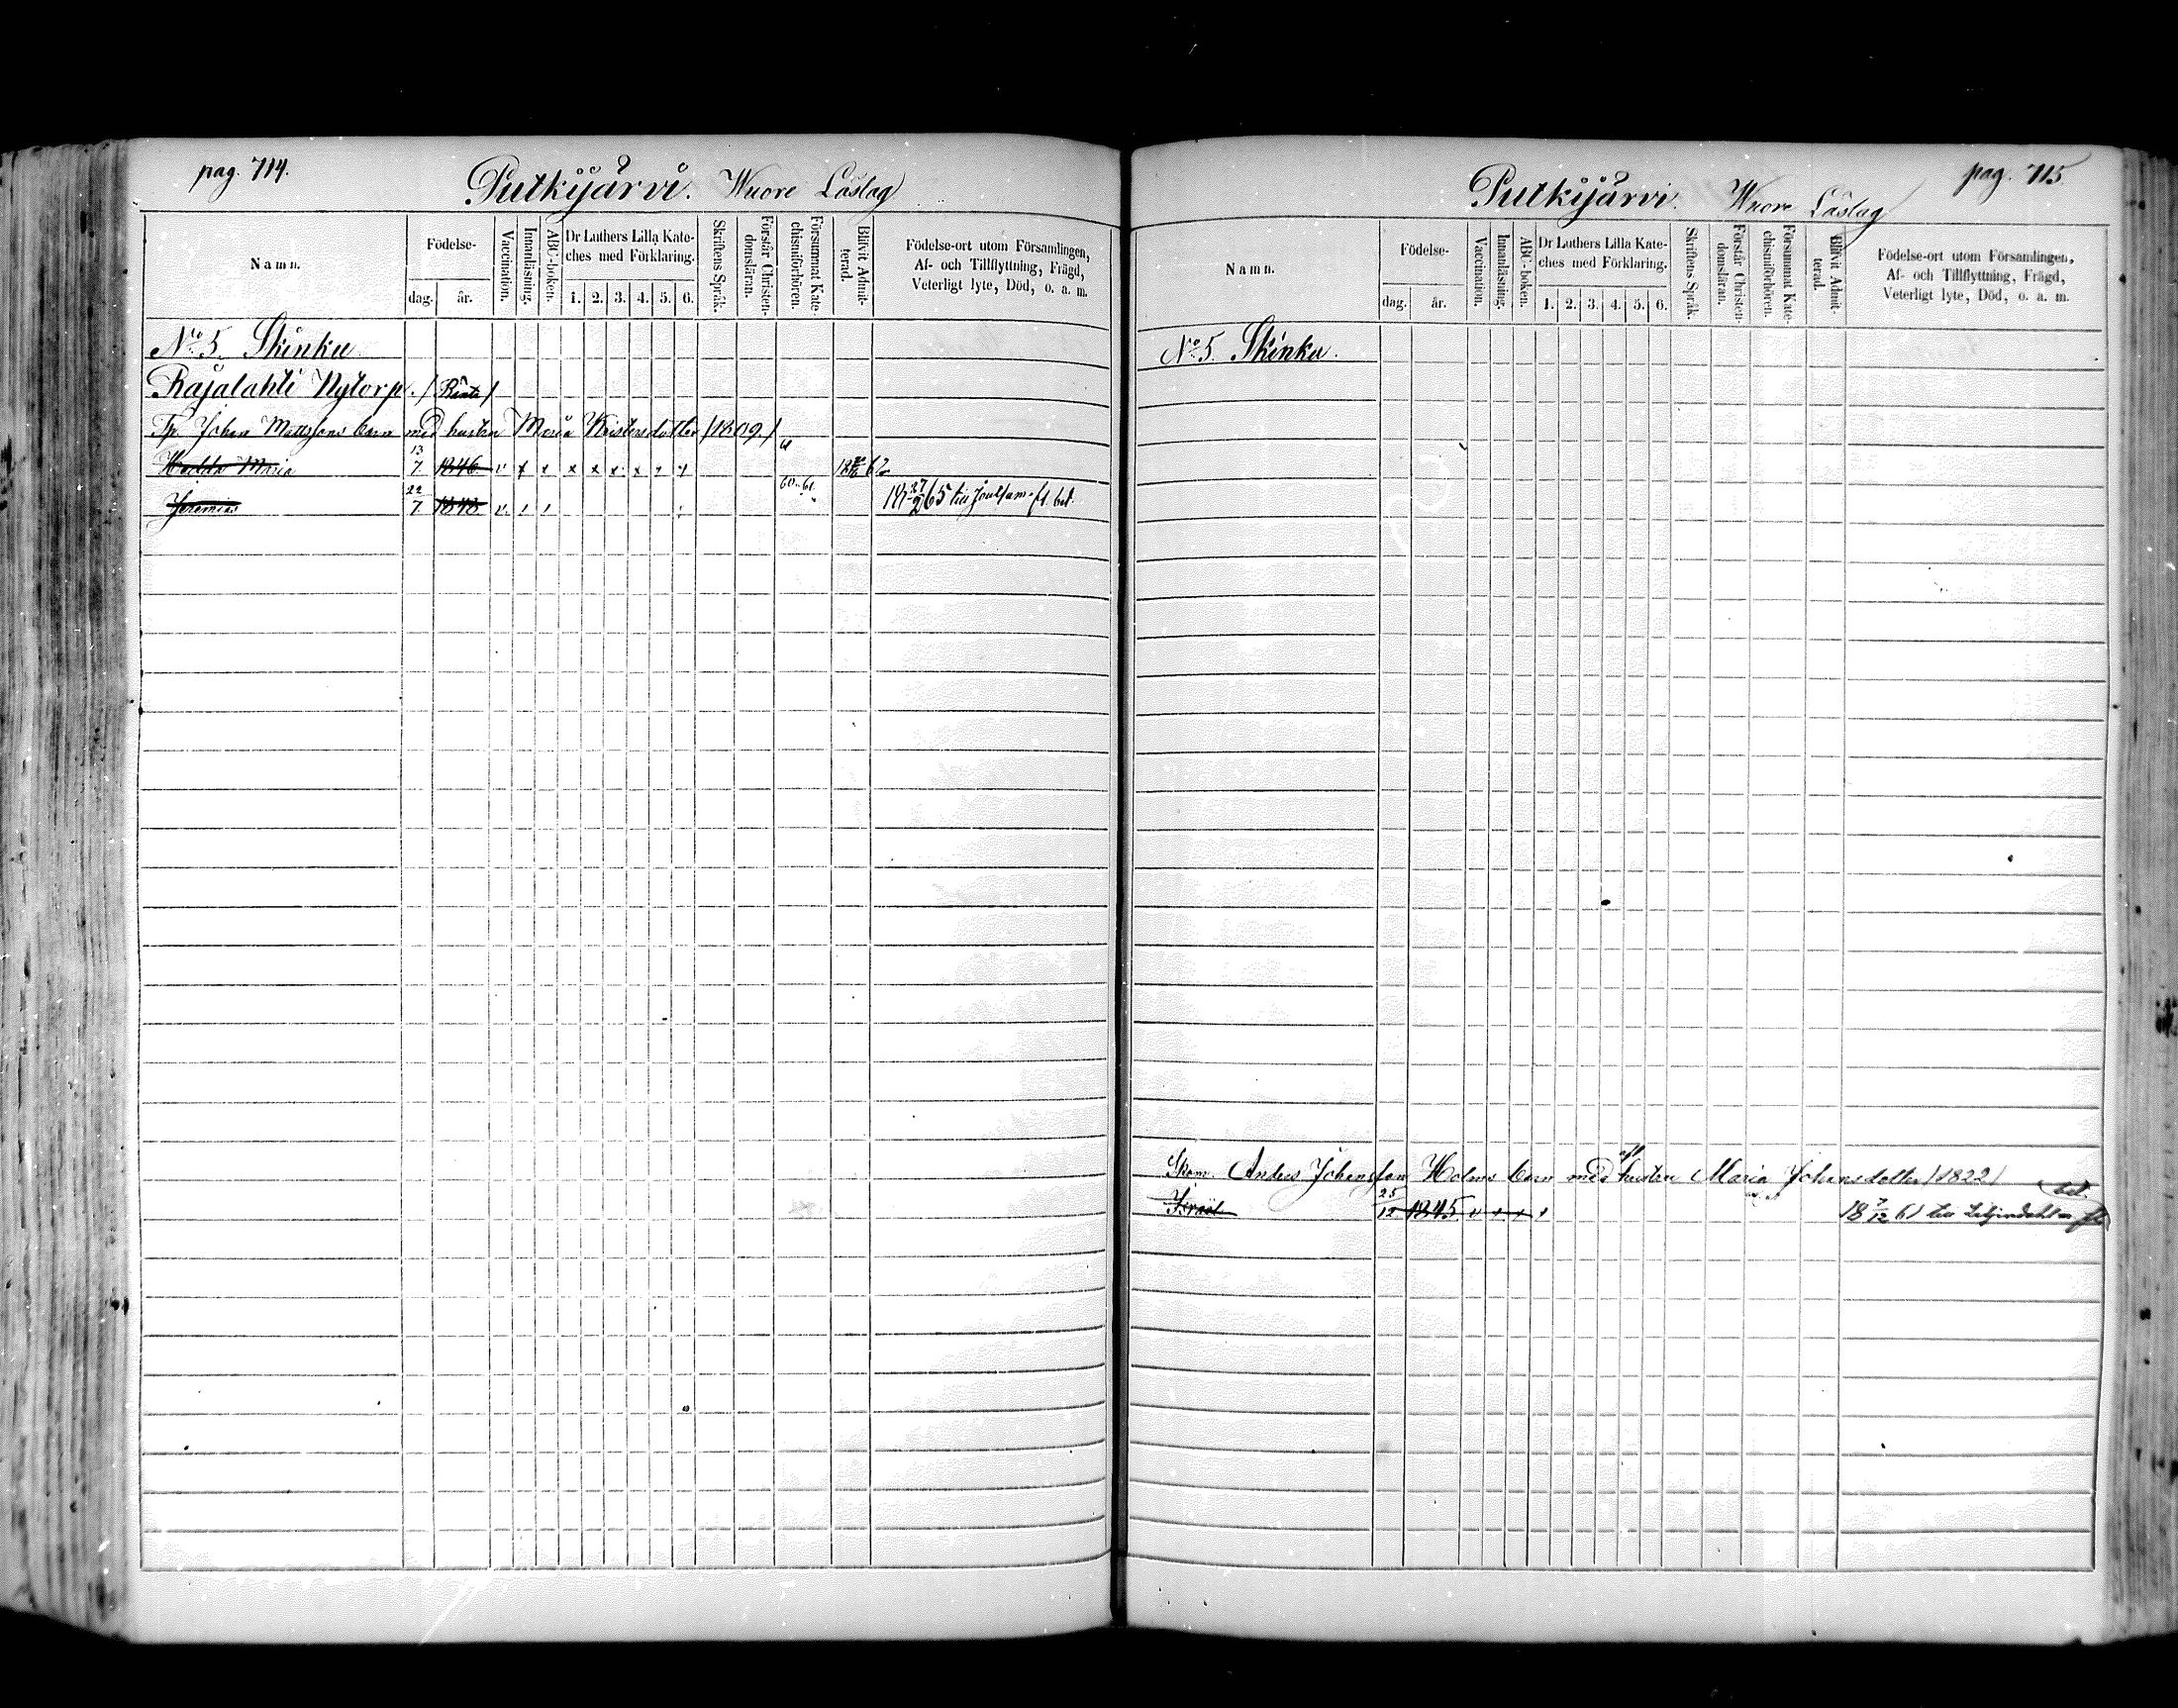 pag. 714.
Putkijärvi. Wuore Läslag
Namn.
Födelse-
dag.
år.
Vaccination.
Innanläsning.
ABC-boken.
Dr Luthers Lilla Kate-
ches med Förklaring.
1. 2. 3. 4. 5. 6.
Skriftens Språk.
Förstår Christen-
domsläran.
Försummat Kate-
chismiförhören.
Blifvit Admit-
terad.
Födelse-ort utom Församlingen,
Af- och Tillflyttning, Frägd,
Veterligt lyte, Död, o. a. m.
No 5. Skinku
Rajalahti Nytorp. / Ranta /
Tp. Johan Mattssons barn med hustru Maria Kristersdotter /1809./
Hedda Maria 13/7 1846. v x x x x x x x x 61 62
Jeremias 22/7 1848. v 60-61. 18 27/9 65 till f1. bet.
pag. 715
Putkijärvi. Wuore Läslag
Namn.
Födelse-
dag.
år.
Vaccination.
Innanläsning.
ABC-boken.
Dr Luthers Lilla Kate-
ches med Förklaring.
1. 2. 3. 4. 5. 6.
Skriftens Språk.
Förstår Christen-
domsläran.
Försummat Kate-
chismiförhören.
Blifvit Admit-
terad.
Födelse-ort utom Församlingen,
Af- och Tillflyttning, Frägd,
Veterligt lyte, Död, o. a. m.
No 5. Skinku.
Skom. Anders Johansson Holms barn med afl hustru Maria Johansdotter /1822/
Israël 25/12 1845 v x x x 18 7/12 61 till bet.